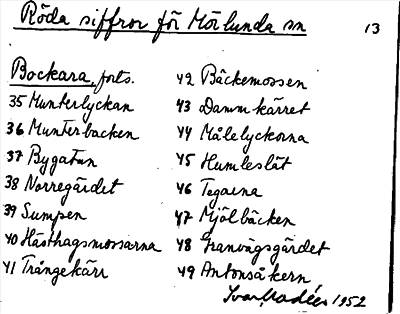 Röda siffror för Mörlunda sn
13
Bockara, forts.
35 Munterlyckan
36 Munterbacken
37 Bygatun
38 Norregärdet
39 Sumpen
40 Hästhagsmossarna
41 Trångekärr
42 Bäckemossen
43 Dammkärret
44 Målelyckorna
45 Humleslät
46 Tegarna
47 Mjölbäcken
48 Granvägsgärdet
49 Antonsåkern
Ivar Modéer 1952